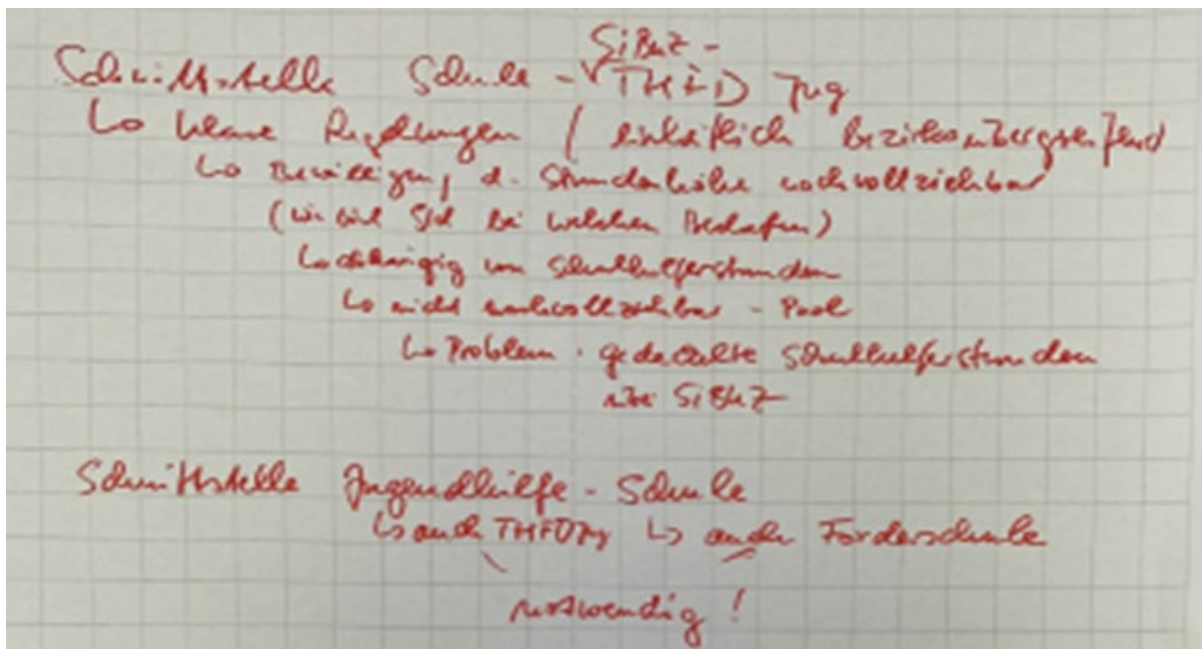 SiBUZ -
Schnittstelle Schule - THFD Jug
↳ klare Regelungen / einheitlich bezirksübergreifend
↳ Bewilligung d. Stundenhöhe nachvollziehbar
(wie viel Std bei welchen Bedarfen)
↳ abhängig von Schulhelferstunden
↳ nicht nachvollziehbar - Pool
↳ Problem · gedeckelte Schulhelferstunden
SiBUZ
Schnittstelle Jugendhilfe - Schule
↳ auch THFDJug ↳ auch Förderschule
notwendig!